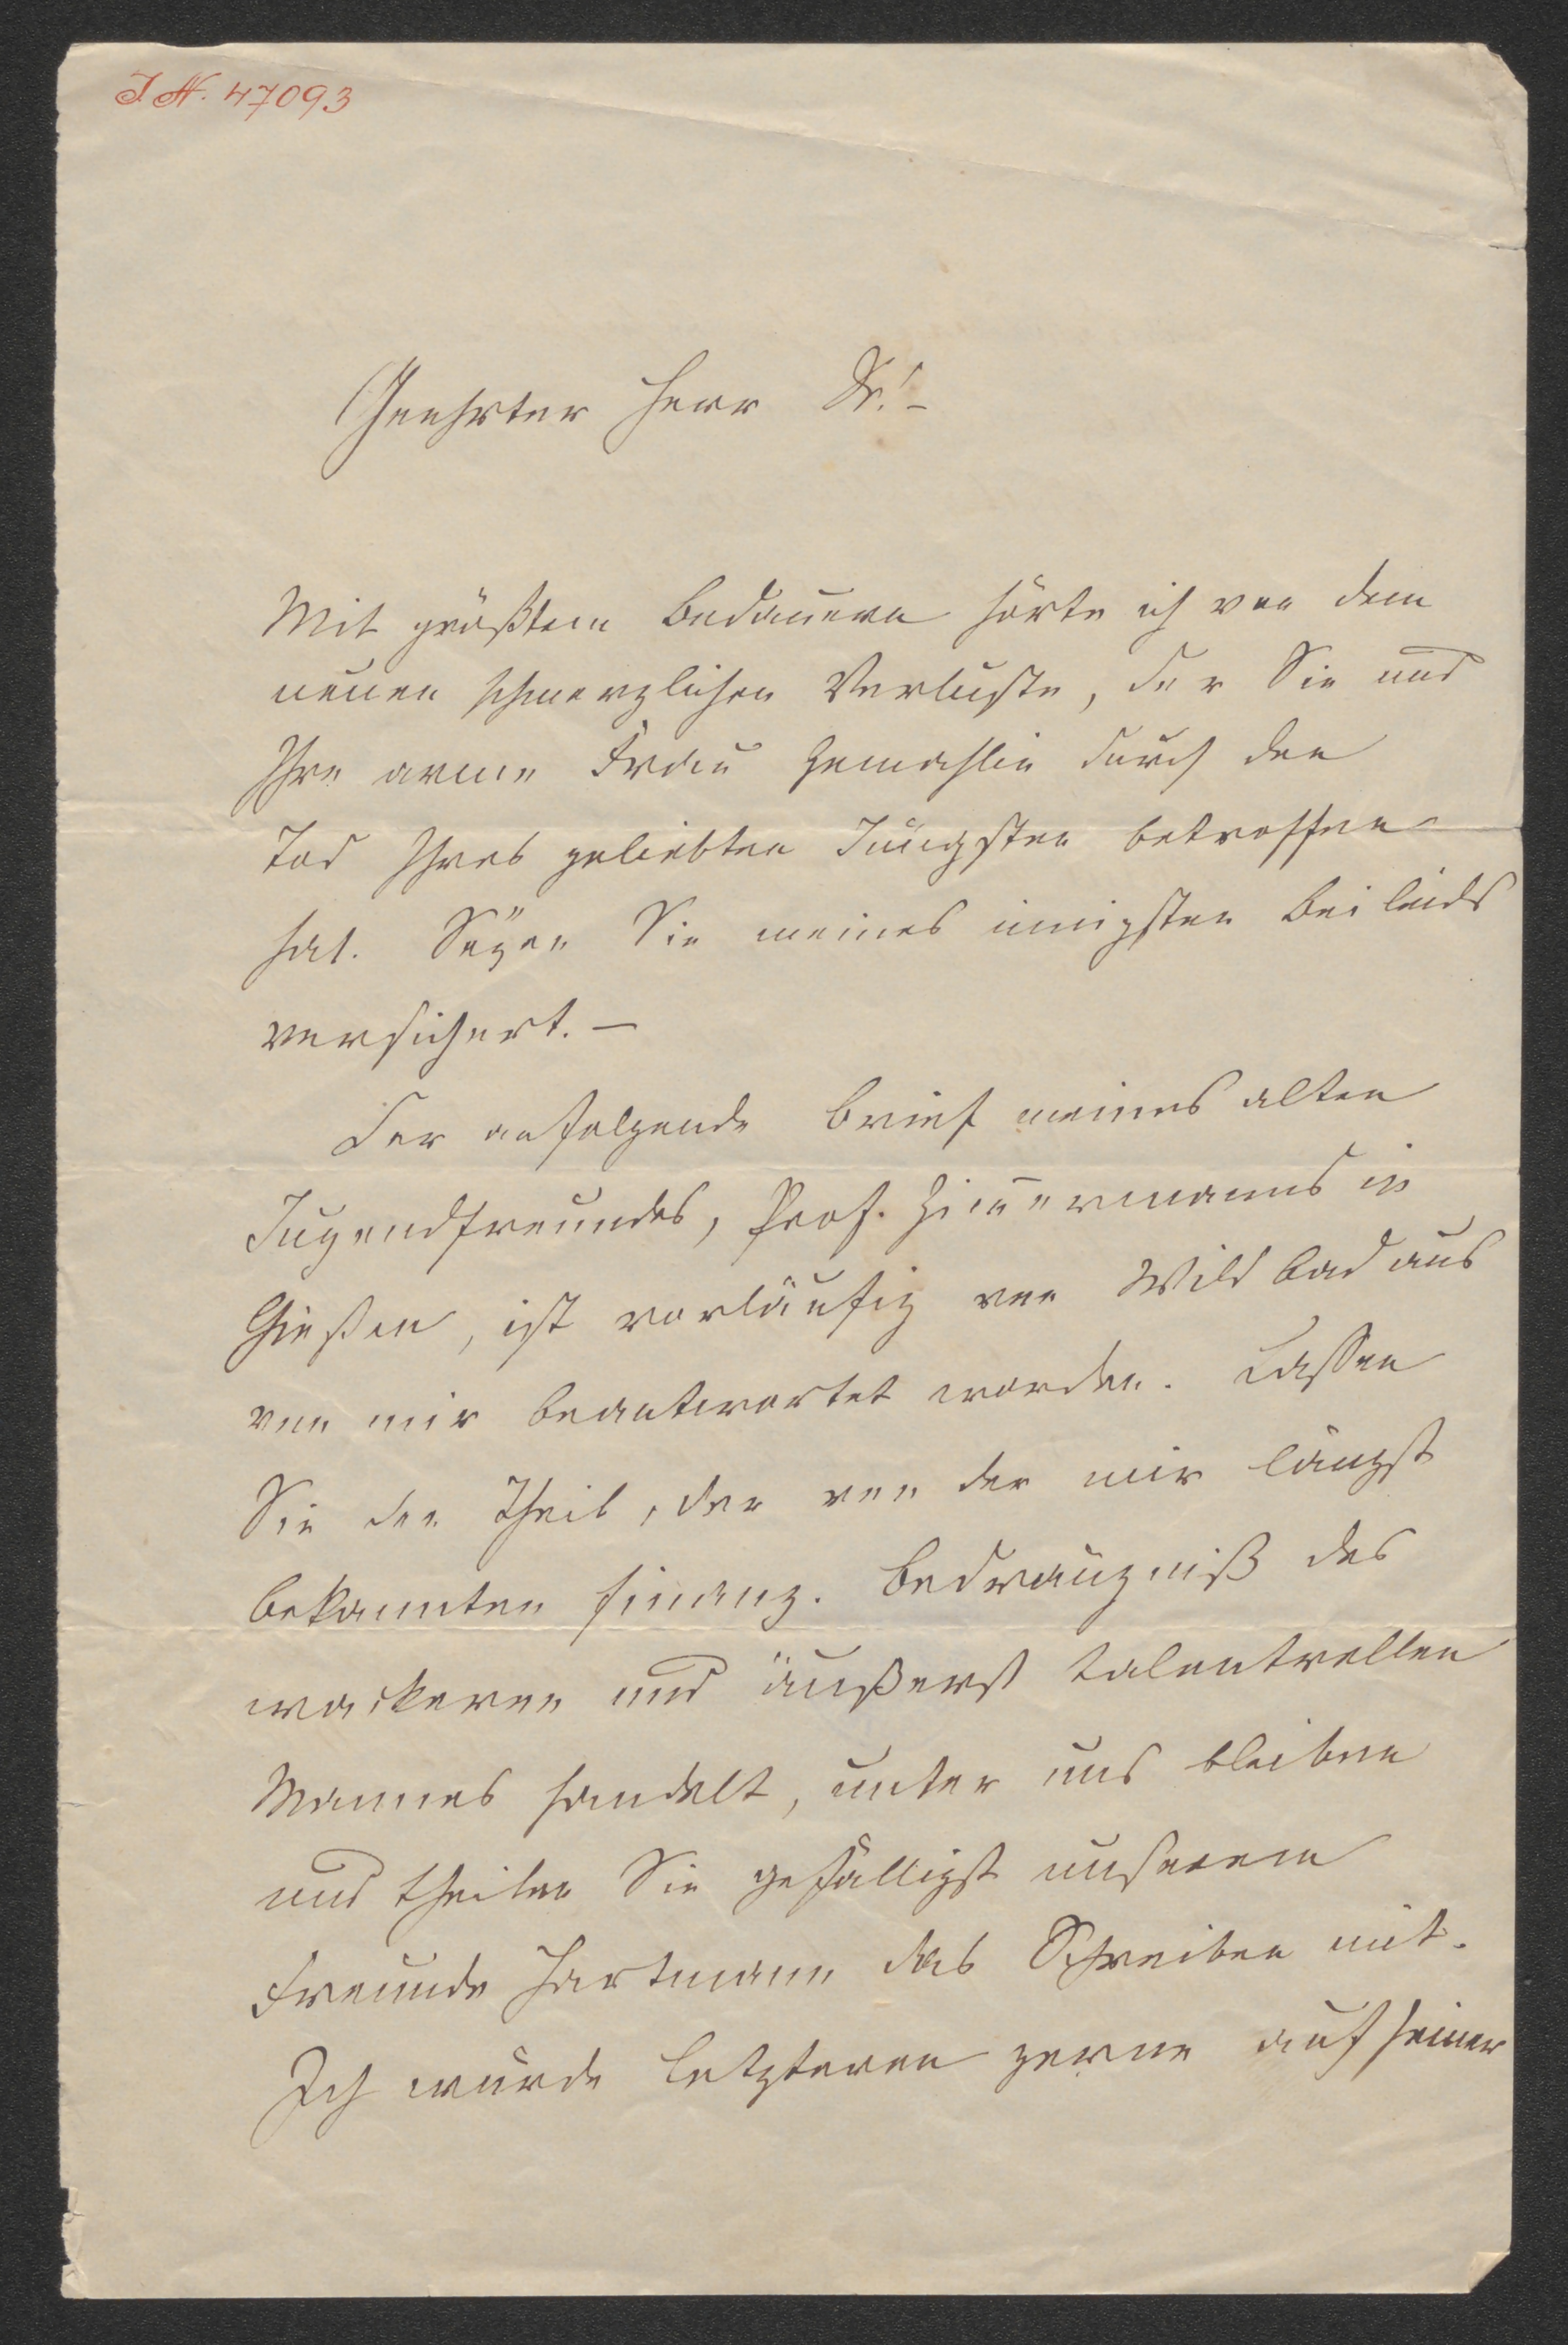 I. N. 47093
Geehrter Herr Dr.! –
Mit größtem Bedauern hörte ich von dem
neuen schmerzlichen Verluste, der Sie und
Ihre arme Frau Gemahlin durch den
Tod Ihres geliebten Jüngsten betroffen
hat. Seÿen Sie meines innigsten Beileids
versichert. –
Der anfolgende Brief meines alten
Jugendfreundes, Prof. Zim̅ermanns in
Gießen, ist vorläufig von Wildbad aus
von mir beantwortet worden. Lassen
Sie den Theil, der von der mir längst
bekannten finanz. Bedrängniß des
wackeren und äußerst talentvollen
Mannes handelt, unter uns bleiben
und theilen Sie gefälligst unserem
Freunde Hartmann das Schreiben mit.
Ich würde letzteren gerne auf seiner